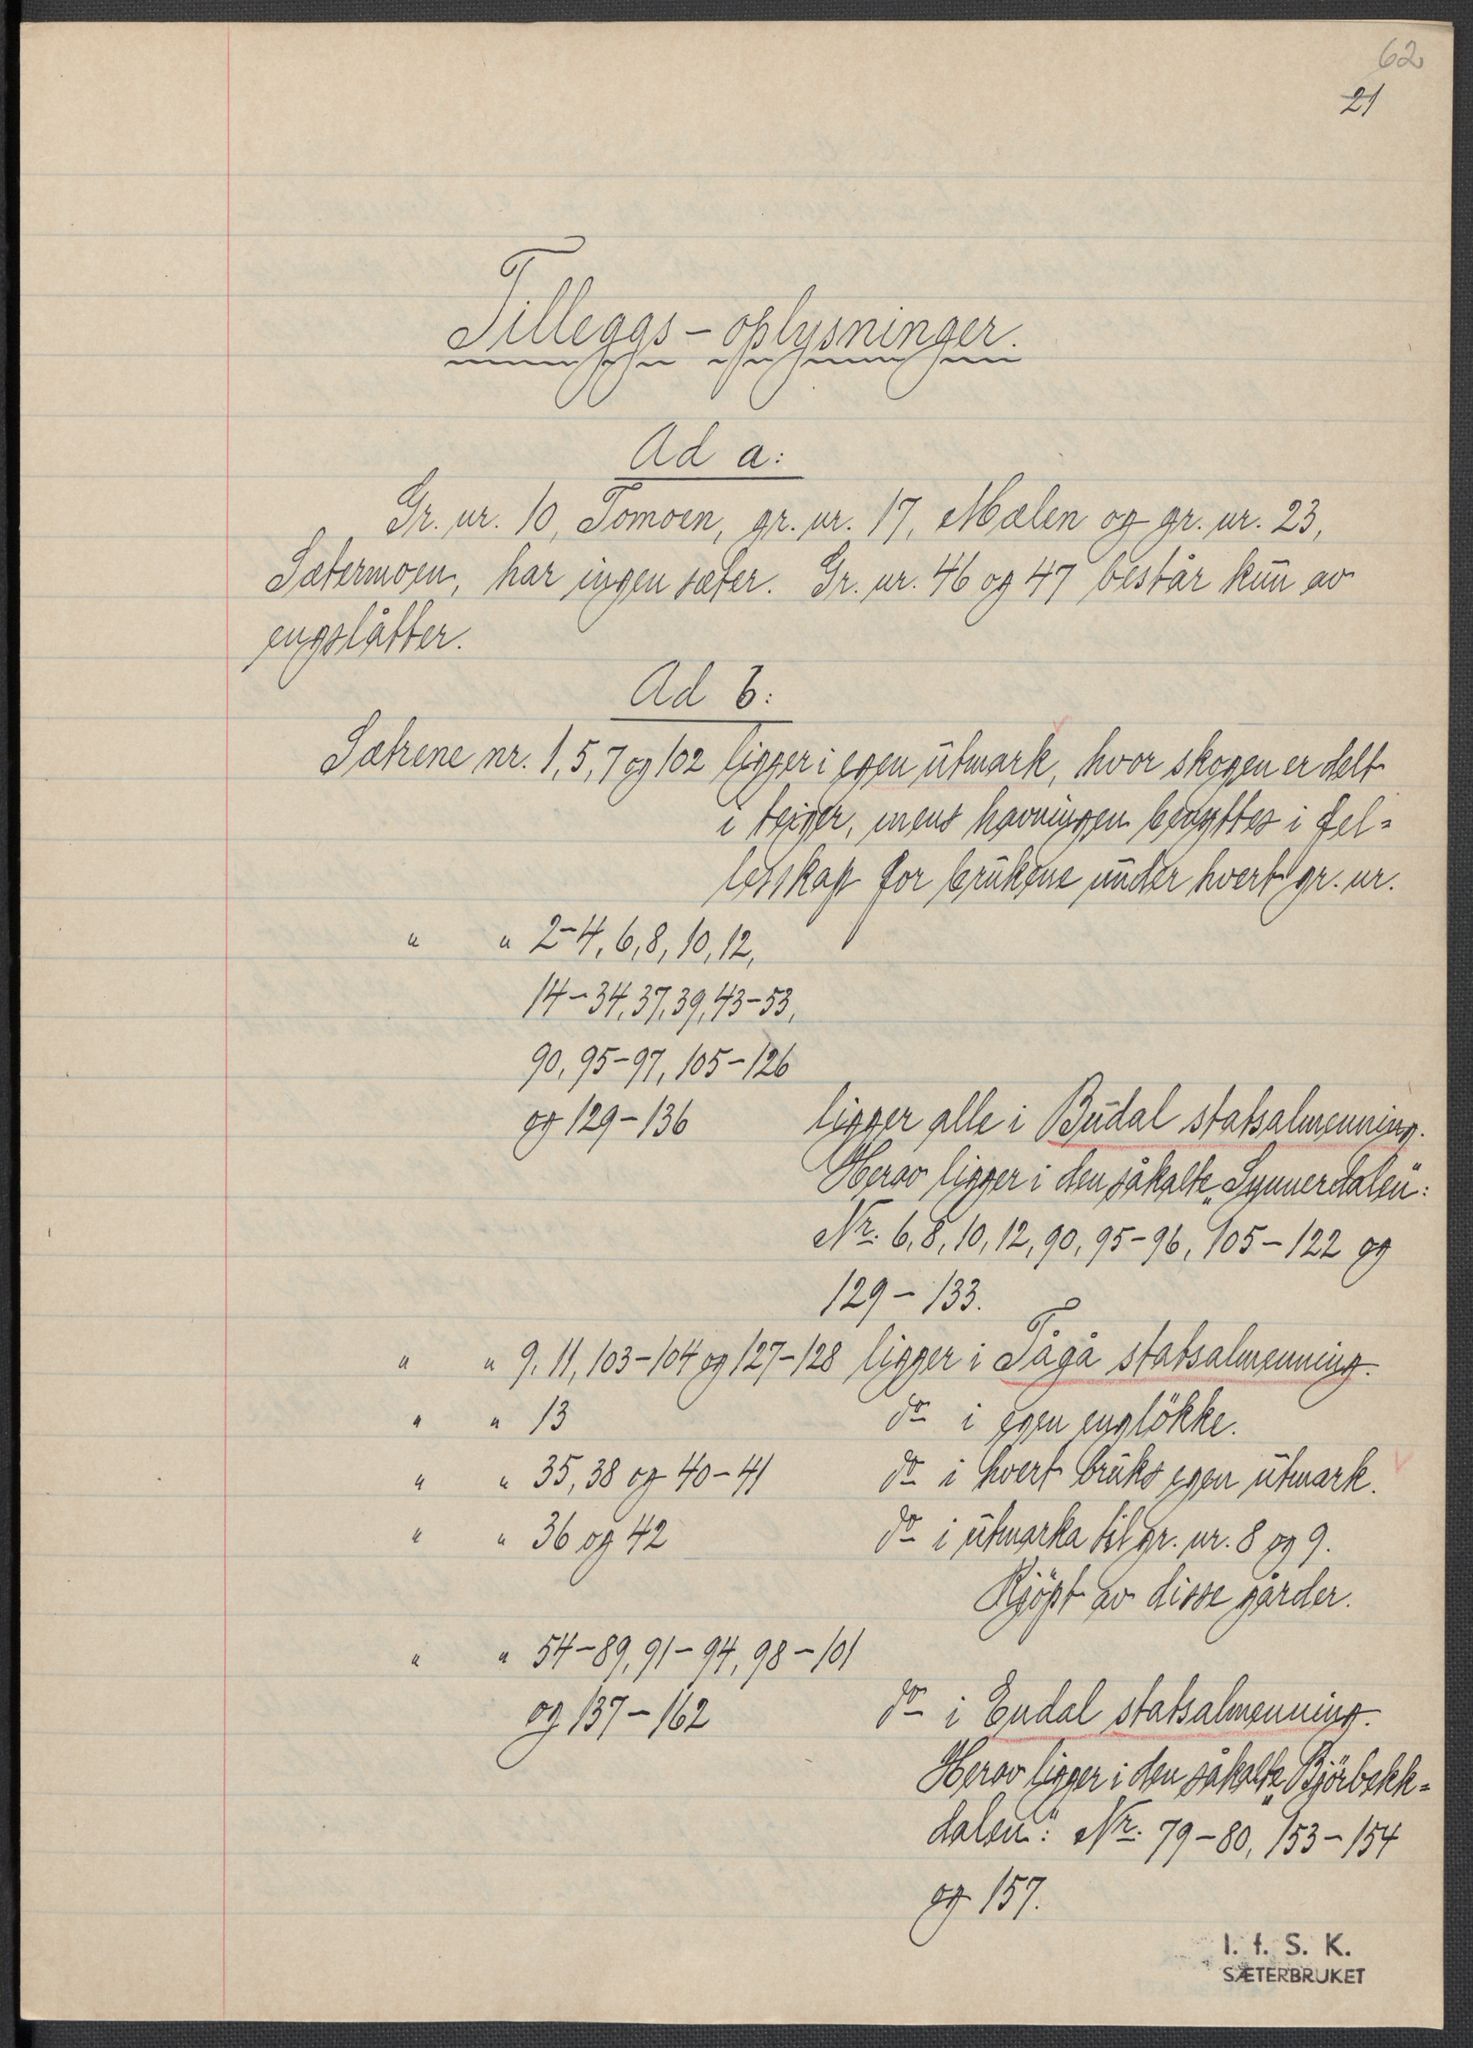 62
21
Tilleggs-oplysninger.
Ad a:
Gr. nr. 10, Tomoen, gr. nr. 17, Mælen og gr. nr. 23,
Sætermoen, har ingen sæter. Gr. nr. 46 og 47 består kun av
engslåtter.
Ad b:
Sætrene nr. 1, 5, 7 og 102 ligger i egen utmark, hvor skogen er delt
i teiger, mens havningen benyttes i fel=
lesskap for brukene under hvert gr. nr.
" " 2-4, 6, 8, 10, 12,
14-34, 37, 39, 43-53,
90, 95-97, 105-126
og 129-136 ligger alle i Budal statsalmenning.
Herav ligger i den såkalte „Synnerdalen":
Nr. 6, 8, 10, 12, 90, 95-96, 105-122 og
129-133.
" " 9, 11, 103-104 og 127-128 ligger i Tågå statsalmenning.
" " 13 do i egen engløkke.
" " 35, 38 og 40-41 do i hvert bruks egen utmark.
" " 36 og 42 do i utmarka til gr. nr. 8 og 9.
Kjøpt av disse gårder.
" " 54-89, 91-94, 98-101
og 137-162 do i Endal statsalmenning.
Herav ligger i den såkalte „Bjørbekk=
dalen": Nr. 79-80, 153-154
og 157.
I. f. S. K.
SÆTERBRUKET